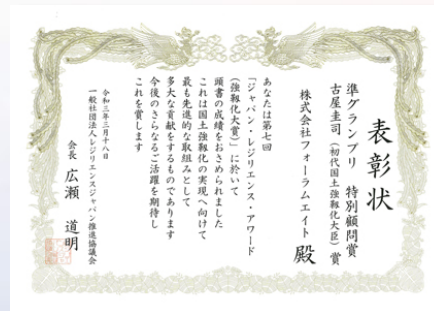 表彰状
準グランプリ 特別顧問賞
古屋圭司(初代国土強靱化大臣)賞
株式会社フォーラムエイト 殿
あなたは第七回
「ジャパン・レジリエンス・アワード
(強靱化大賞)」に於いて
頭書の成績をおさめられました
これは国土強靱化の実現へ向けて
最も先進的な取組みとして
多大な貢献をするものであります
今後のさらなるご活躍を期待し
これを賞します
令和三年三月十八日
一般社団法人レジリエンスジャパン推進協議会
会長 広瀬 道明